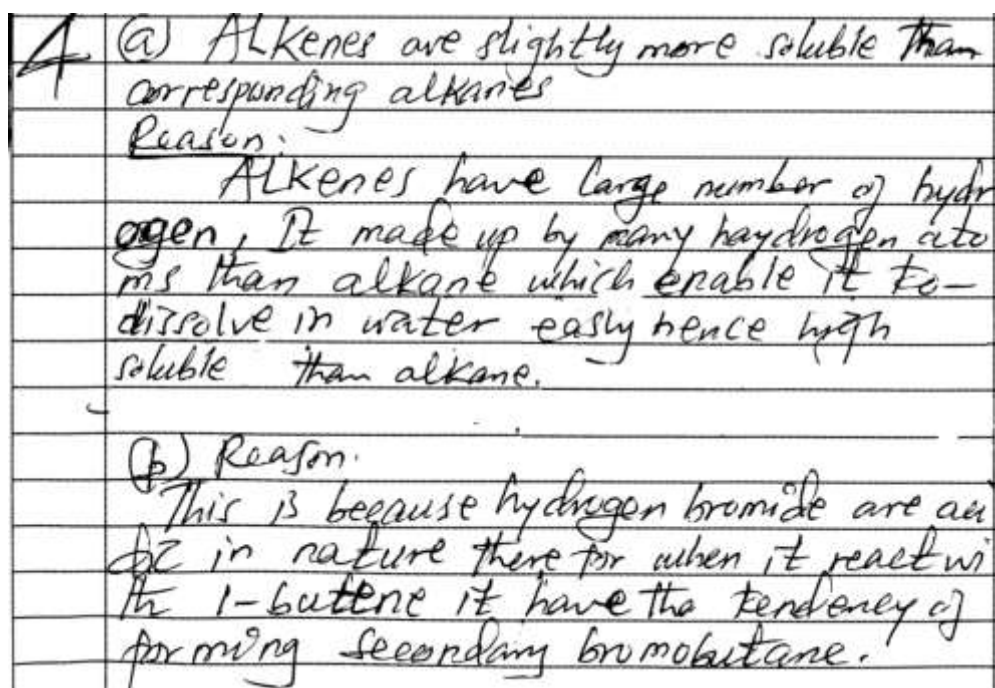 4 (a) Alkenes are slightly more soluble than
corresponding alkanes
Reason:
Alkenes have large number of hydr
ogen, It made up by many haydrogen ato
ms than alkane which enable it to-
dissolve in water easly hence high
soluble than alkane.
(b) Reason.
This is because hydrogen bromide are aci
dic in nature there for when it react wi
th 1-butene it have the tendency of
forming secondary bromobutane.